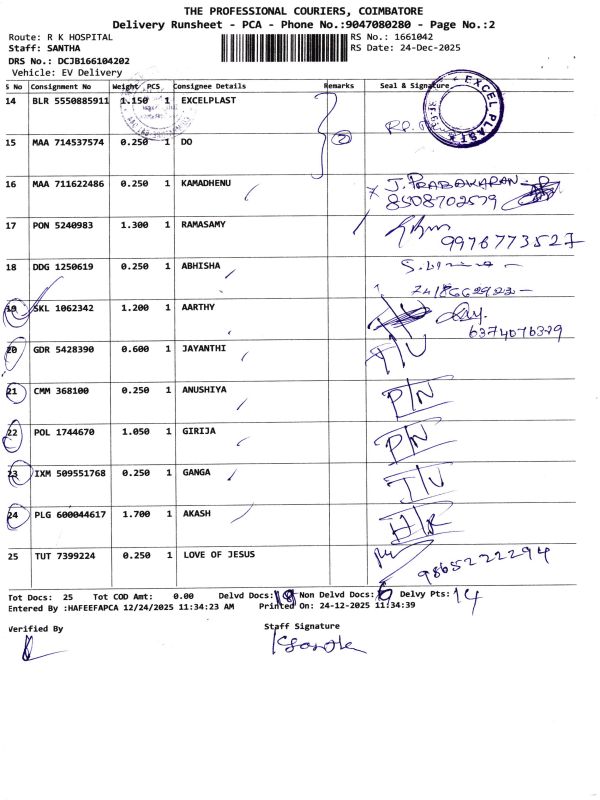 THE PROFESSIONAL COURIERS, COIMBATORE
Delivery Runsheet - PCA - Phone No.:9047080280 - Page No.:2
Route: R K HOSPITAL RS No.: 1661042
Staff: SANTHA RS Date: 24-Dec-2025
DRS No.: DCJB166104202
Vehicle: EV Delivery
S No Consignment No Weight PCS Consignee Details Remarks Seal & Signature
14 BLR 5550885911 1.150 1 EXCELPLAST
EXCEL PLAST
15 MAA 714537574 0.250 1 DO 2
16 MAA 711622486 0.250 1 KAMADHENU J. PRABAKARAN
8508702579
17 PON 5240983 1.300 1 RAMASAMY
9976773527
18 DDG 1250619 0.250 1 ABHISHA
19 SKL 1062342 1.200 1 AARTHY
6374076379
20 GDR 5428390 0.600 1 JAYANTHI I/U
21 CMM 368100 0.250 1 ANUSHIYA P/N
22 POL 1744670 1.050 1 GIRIJA P/N
23 IXM 509551768 0.250 1 GANGA I/U
24 PLG 600044617 1.700 1 AKASH
25 TUT 7399224 0.250 1 LOVE OF JESUS 9865222294
Tot Docs: 25 Tot COD Amt: 0.00 Delvd Docs: Non Delvd Docs: 6 Delvy Pts: 14
Entered By :HAFEEFAPCA 12/24/2025 11:34:23 AM Printed On: 24-12-2025 11:34:39
Verified By Staff Signature